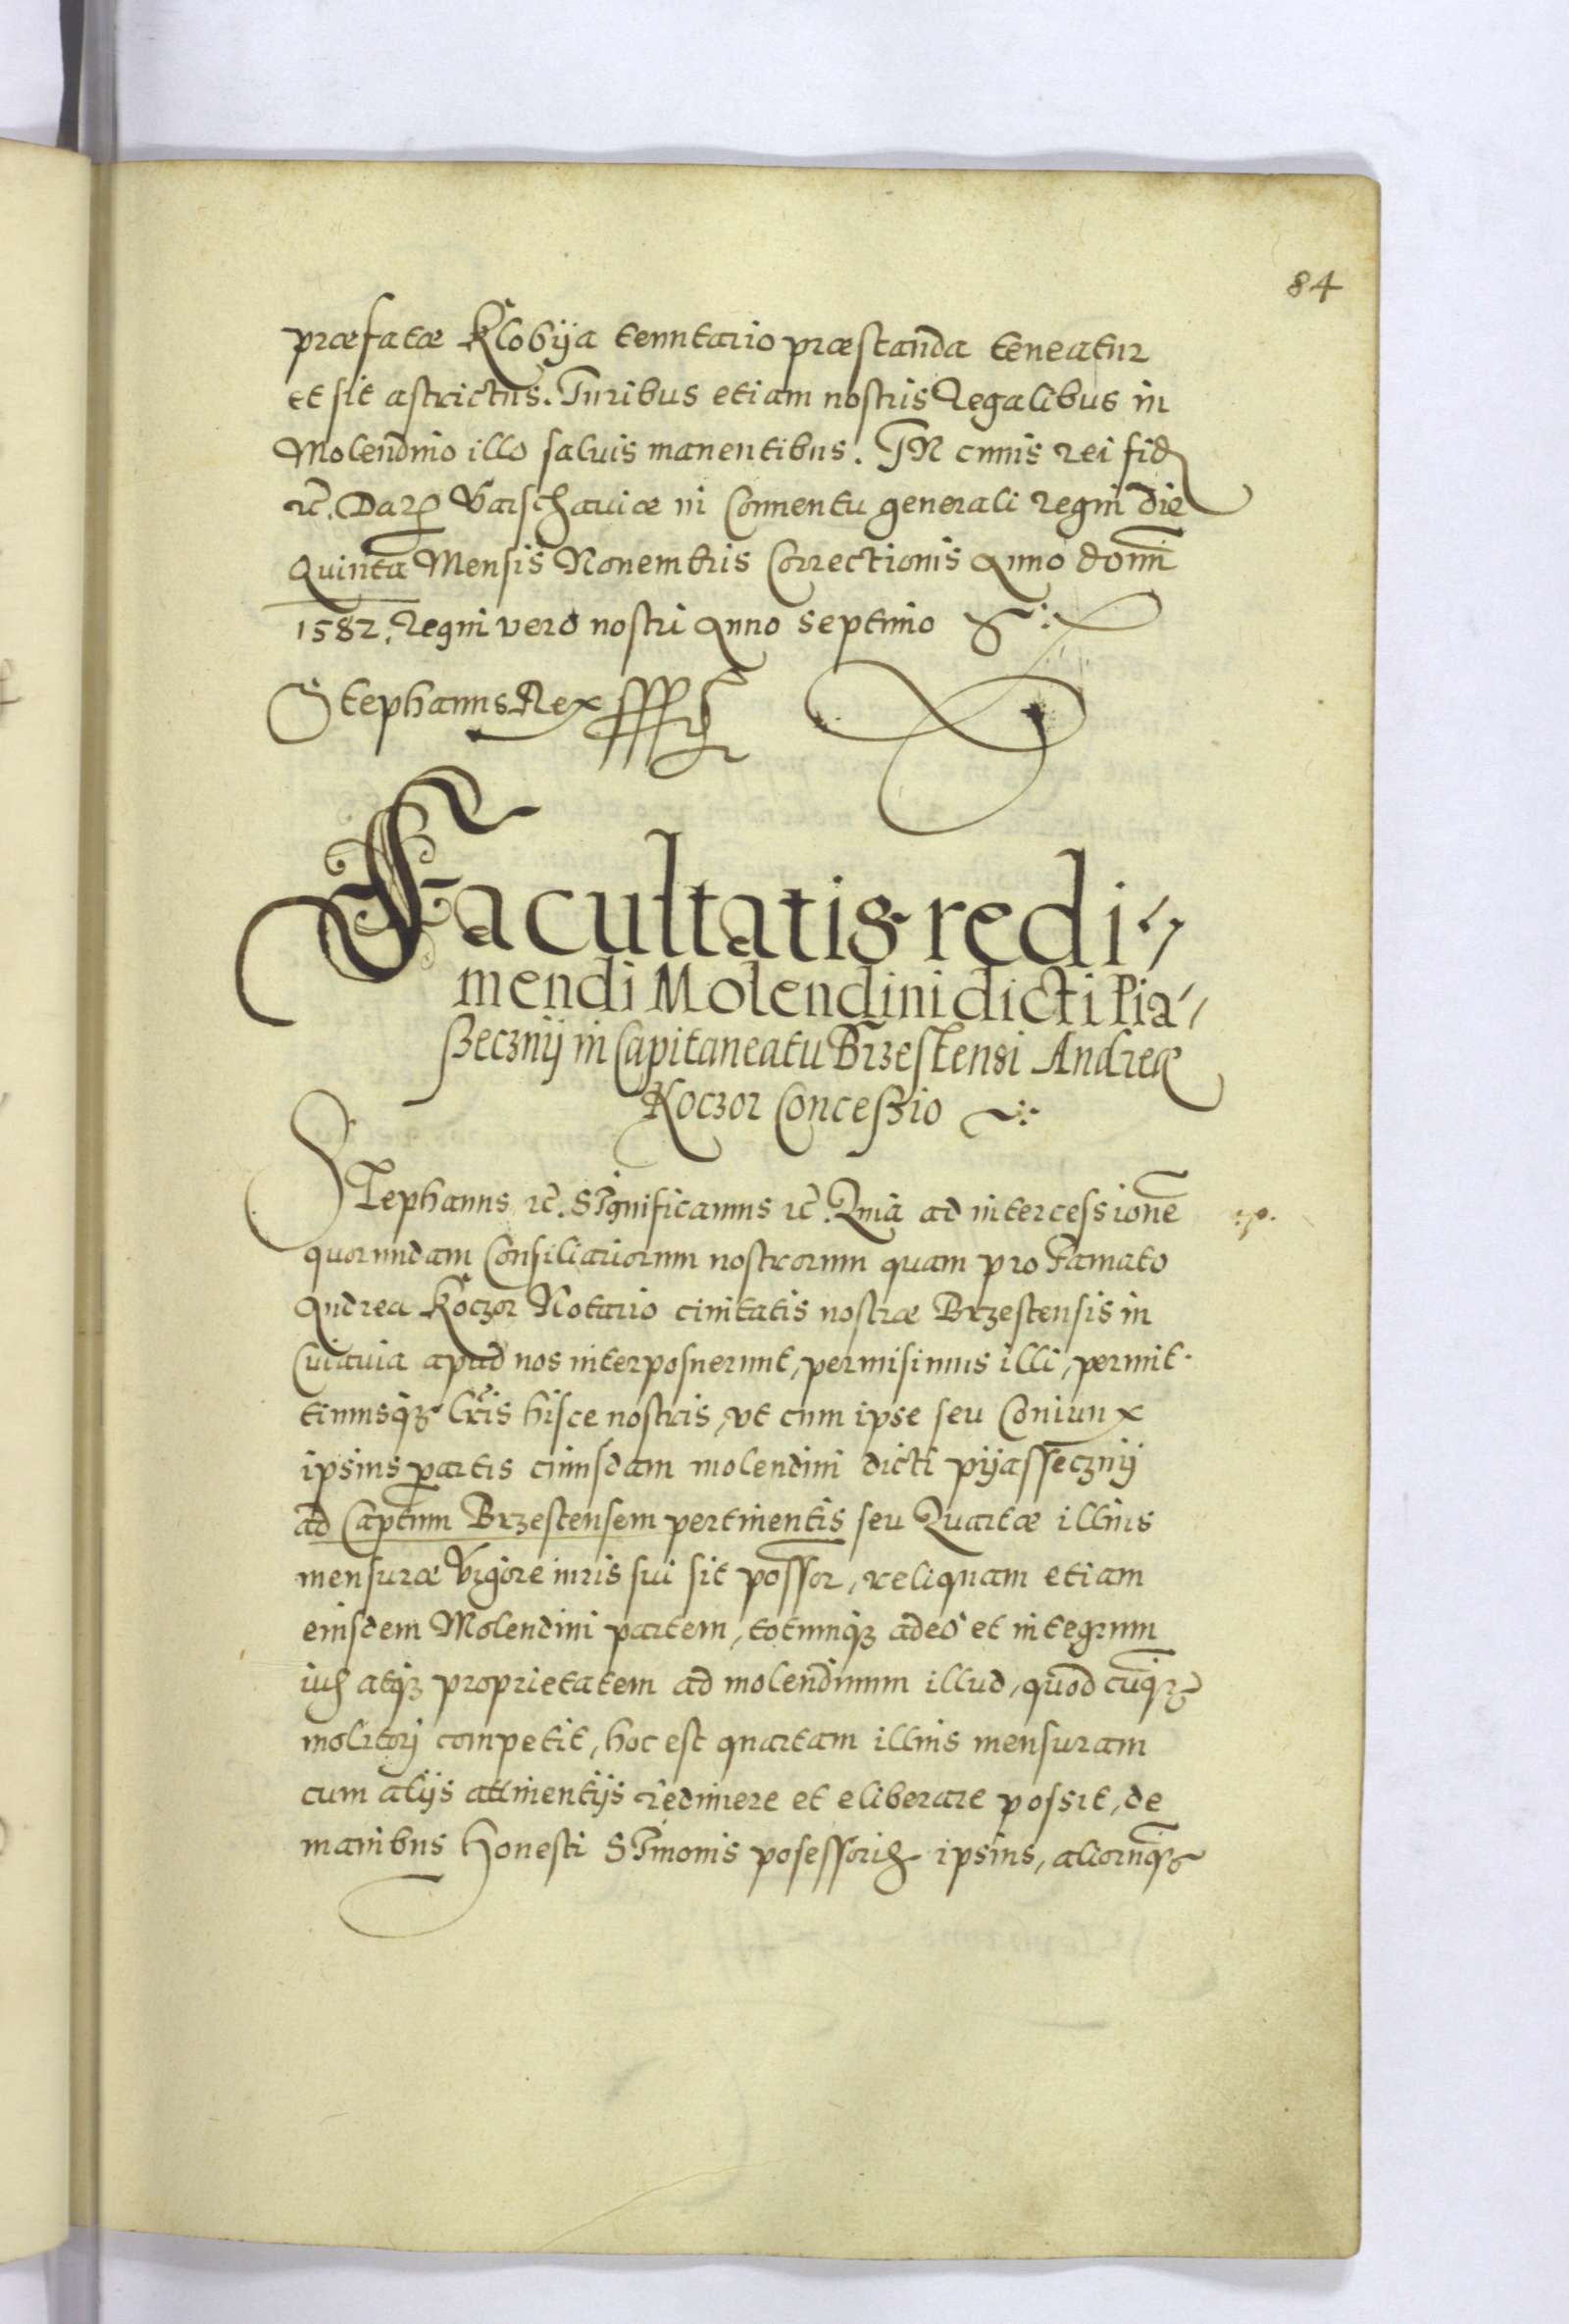 84
præfatæ Klobÿa tenutario præstanda teneatur
et sit astrictus. Iuribus etiam nostris Regalibus in
Molendino illo saluis manentibus. IN cuius rei fid
ec. Dat Varschauiæ in Conuentu generali regni die
Quinta Mensis Nouembris Correctionis Anno domi
1582. Regni vero nostri Anno septimo
Stephanus Rex
Facultatis redi-
mendi Molendini dicti Pia-
szecznÿ in Capitaneatu Brzestensi Andreæ
Koczor Conceszio
Stephanus ec. Significamus ec. Quia ad intercessione
quorundam Consiliariorum nostrorum quam pro Famato
Andrea Koczor Notario ciuitatis nostræ Brzestensis in
Cuiauia apud nos interposuerunt, permisimus illi, permit-
timusqȝ lris hisce nostris, vt cum ipse seu Coniunx
ipsius partis cuiusdam molendini dicti pÿassecznÿ
ad Captum Brzestensem pertinentis seu Quartæ illius
mensuræ Vigore iuris sui sit possor, reliquam etiam
eiusdem Molendini partem, totumqȝ adeo et integrum
ius atqȝ proprietatem ad molendinum illud, quod cuiqȝ
molitorj competit, hoc est quartam illius mensuram
cum alÿs attinentÿs redimere et eliberare possit, de
manibus Honesti Simonis posessoris ipsius, aliorumqȝ